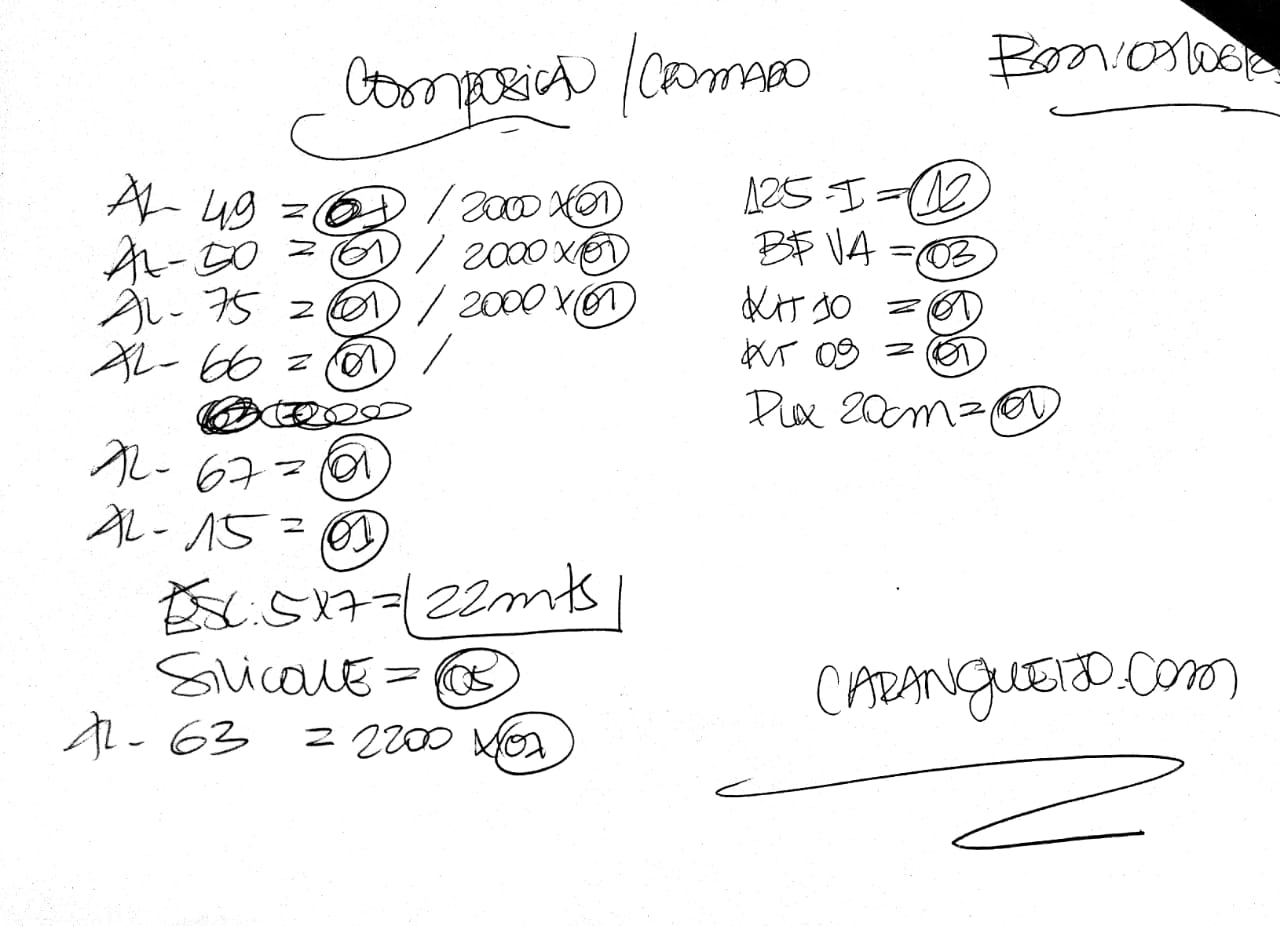 Composição / Cromado
AL- 49 = 01 / 2000 x 01
AL- 50 = 01 / 2000 x 01
AL- 75 = 01 / 2000 x 01
AL- 66 = 01 /
AL- 67 = 01
AL- 15 = 01
Esc. 5x7 = 22mts
Silicone = 05
AL- 63 = 2200 x
125-I = 12
VA = 03
KIT 10 = 01
KIT 09 = 01
Pux 20cm = 01
CARANGUEIJO.COM